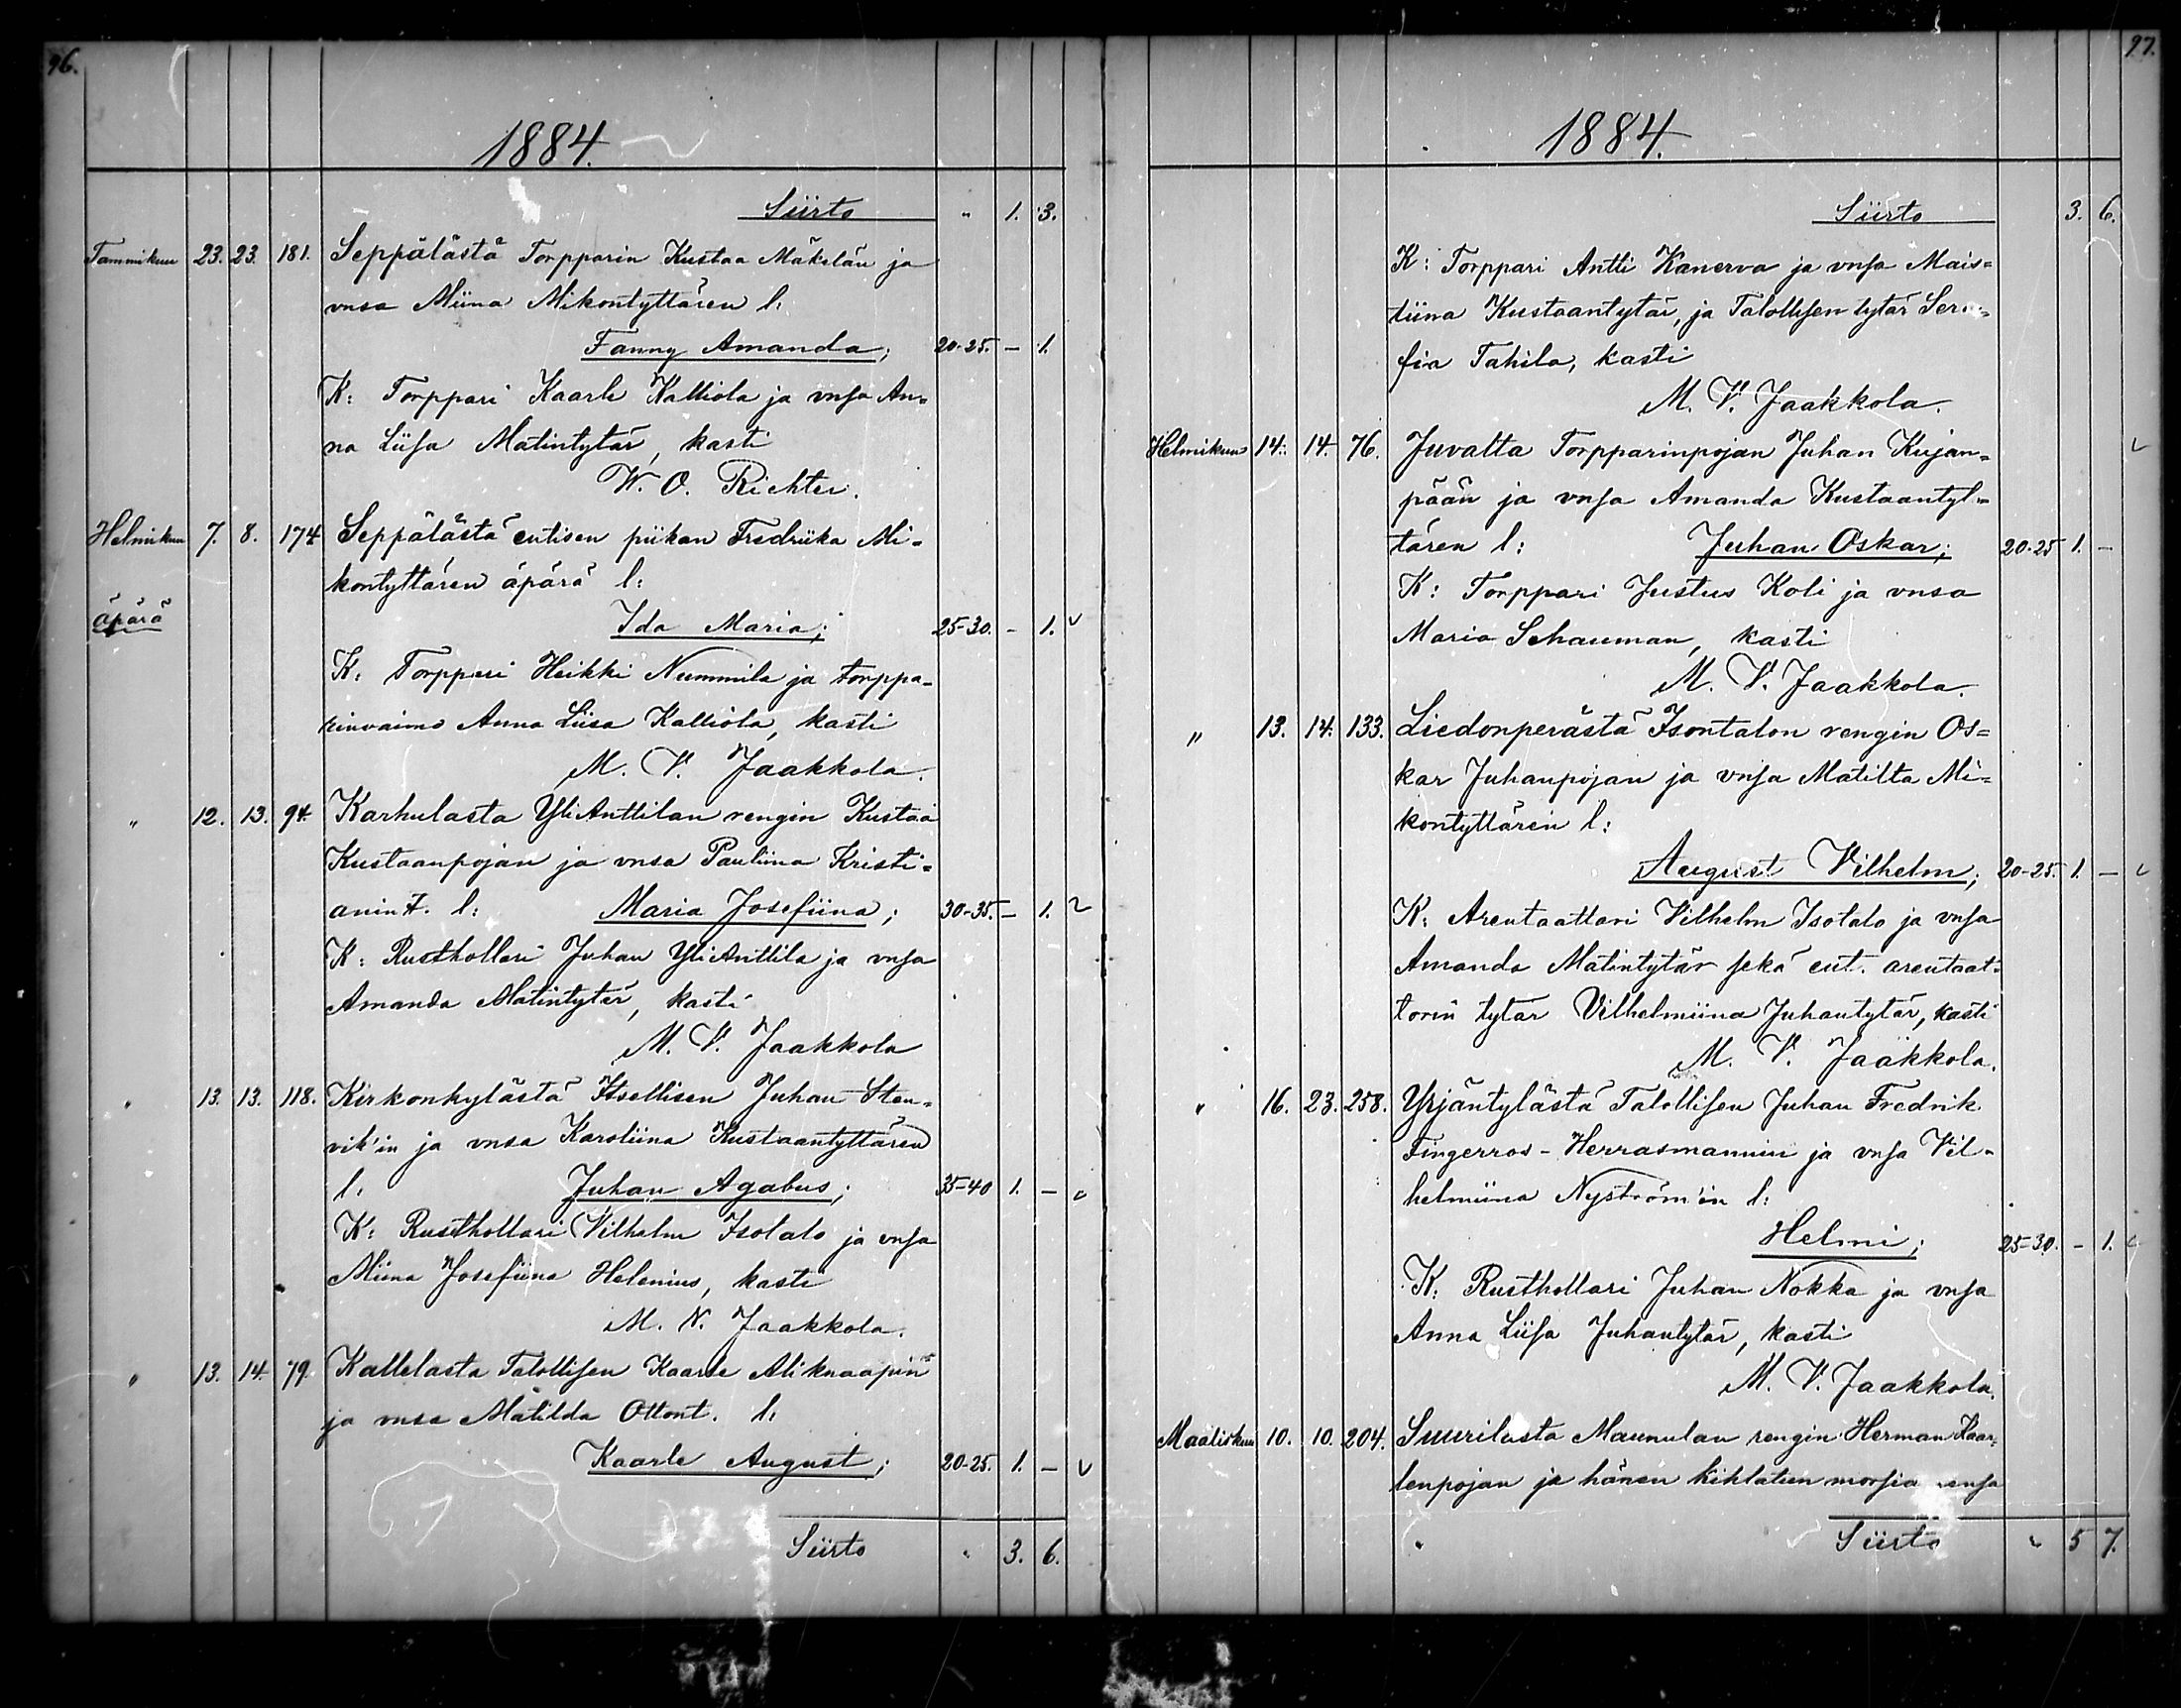 96.
1884.
Siirto " 1. 3.
Tammikuu 23. 23. 181. Seppälästä Torpparin Kustaa Mäkelän ja
vnsa Miina Mikontyttären l:
Fanny Amanda; 20-25. - 1.
K: Torppari Kaarle Kalliola ja vnsa An-
na Liisa Matintytär, kasti
W. O. Richter.
Helmikuu 7. 8. 174 Seppälästä entisen piikan Fredriika Mi-
kontyttären äpärä l:
äpärä
Ida Maria; 25-30. - 1.
K: Torppari Heikki Nummila ja torppa-
rinvaimo Anna Liisa Kalliola, kasti
M. V. Jaakkola.
" 12. 13. 94. Karhulasta YliAnttilan rengin Kustaa
Kustaanpojan ja vnsa Pauliina Kristi-
anint. l: Maria Josefiina; 30-35. - 1.
K: Rusthollari Juhan YliAnttila ja vnsa
Amanda Matintytär, kasti
M. V. Jaakkola
" 13. 13. 118. Kirkonkylästä Itsellisen Juhan Sten-
vik'in ja vnsa Karoliina Kustaantyttären
l: Juhan Agabus; 35-40 1. -
K: Rusthollari Vilhelm Isotalo ja vnsa
Miina Josefiina Helenius, kasti
M. V. Jaakkola.
" 13. 14. 79. Kallelasta Talollisen Kaarle Aliknaapin
ja vnsa Matilda Ottont. l:
Kaarle August; 20-25. 1. -
Siirto " 3. 6.
97.
1884.
Siirto 3. 6.
K: Torppari Antti Kanerva ja vnsa Mais-
tiina Kustaantytär, ja Talollisen tytär Sera-
fia Tahila, kasti
M. V. Jaakkola.
Helmikuu 14. 14. 76. Juvalta Torpparinpojan Juhan Kujan-
pään ja vnsa Amanda Kustaantyt-
tären l: Juhan Oskar; 20-25 1. -
K: Torppari Justus Koli ja vnsa
Maria Schauman, kasti
M. V. Jaakkola.
" 13. 14. 133. Liedonperästä Isontalon rengin Os-
kar Juhanpojan ja vnsa Matilta Mi-
kontyttären l:
August Vilhelm; 20-25. 1. -
K: Arentaattori Vilhelm Isotalo ja vnsa
Amanda Matintytär sekä ent. arentaat-
torin tytär Vilhelmiina Juhantytär, kasti
M. V. Jaakkola.
" 16. 23. 258. Yrjäntylästä Talollisen Juhan Fredrik
Fingerros-Herrasmannin ja vnsa Vil-
helmiina Nyström'in l:
Helmi; 25-30. - 1.
K: Rusthollari Juhan Nokka ja vnsa
Anna Liisa Juhantytär, kasti
M. V. Jaakkola.
Maaliskuu 10. 10. 204. Suurilasta Maunulan rengin Herman Kaar-
lenpojan ja hänen kihlatun
Siirto " 5 7.